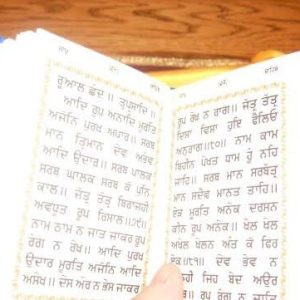 ਰੂਆਲ ਛੰਦ॥ ਤ੍ਵਪ੍ਰਸਾਦਿ॥
ਆਦਿ ਰੂਪ ਅਨਾਦਿ ਮੂਰਤਿ
ਅਜੋਨਿ ਪੁਰਖ ਅਪਾਰ॥ ਸਰਬ
ਮਾਨ ਤ੍ਰਿਮਾਨ ਦੇਵ ਅਭੇਵ
ਆਦਿ ਉਦਾਰ॥ ਸਰਬ ਪਾਲਕ
ਸਰਬ ਘਾਲਕ ਸਰਬ ਕੋ ਪੁਨਿ
ਕਾਲ॥ ਜੱਤ੍ਰ ਤੱਤ੍ਰ ਬਿਰਾਜਹੀ
ਅਵਧੂਤ ਰੂਪ ਰਿਸਾਲ॥੭੯॥
ਨਾਮ ਠਾਮ ਨ ਜਾਤ ਜਾਕਰ ਰੂਪ
ਰੰਗ ਨ ਰੇਖ॥ ਆਦਿ ਪੁਰਖ
ਉਦਾਰ ਮੂਰਤਿ ਅਜੋਨਿ ਆਦਿ
ਅਸੇਖ॥ ਦੇਸ ਔਰ ਨ ਭੇਸ ਜਾਕਰ
ਰੂਪ ਰੇਖ ਨ ਰਾਗ॥ ਜੱਤ੍ਰ ਤੱਤ੍ਰ
ਦਿਸਾ ਵਿਸਾ ਹੁਇ ਫੈਲਿਓ
ਅਨੁਰਾਗ॥੮੦॥ ਨਾਮ ਕਾਮ
ਬਿਹੀਨ ਪੇਖਤ ਧਾਮ ਹੂੰ ਨਹਿ
ਜਾਹਿ॥ ਸਰਬ ਮਾਨ ਸਰਬੱਤ੍ਰ
ਮਾਨ ਸਦੈਵ ਮਾਨਤ ਤਾਹਿ॥
ਏਕ ਮੂਰਤਿ ਅਨੇਕ ਦਰਸਨ
ਕੀਨ ਰੂਪ ਅਨੇਕ॥ ਖੇਲ ਖੇਲ
ਅਖੇਲ ਖੇਲਨ ਅੰਤ ਕੋ ਫਿਰ
ਏਕ॥੮੧॥
ਜਿਹ ਬੇਦ ਅਉਰ